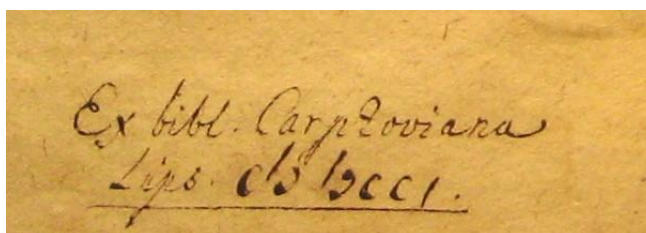 Ex bibl. Carpzoviana
Lips. cIↄ Iↄccı.